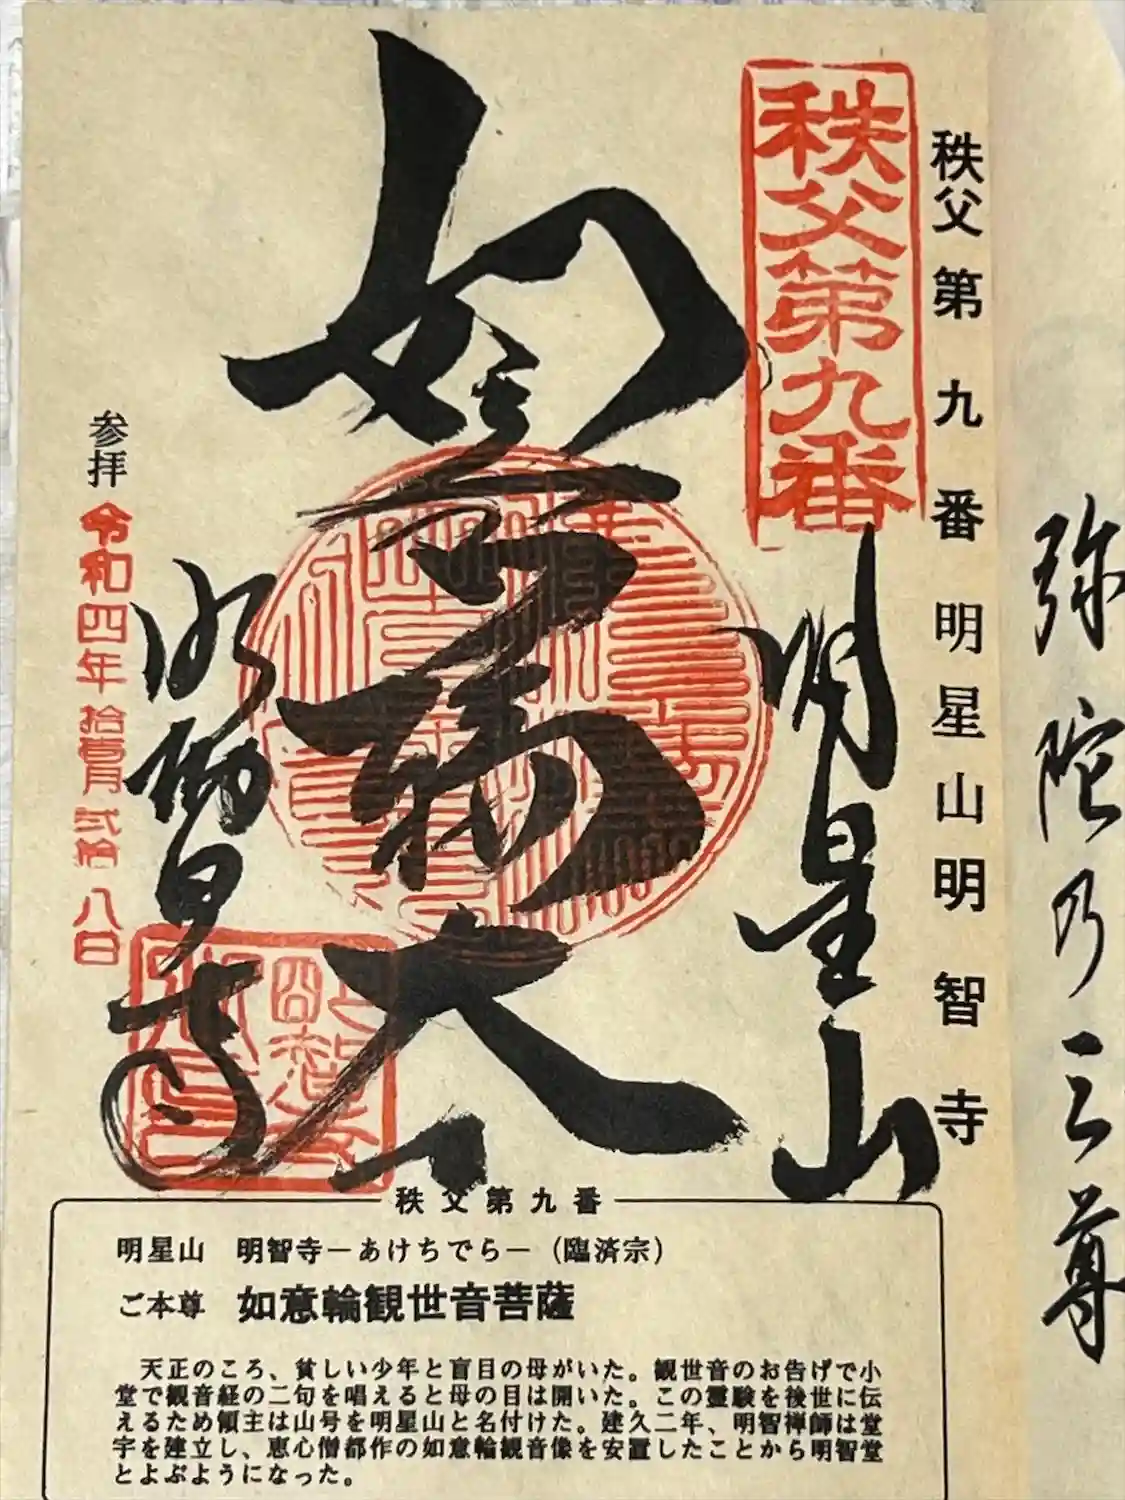 弥陀乃三尊
秩父第九番 明星山明智寺
秩父第九番
明星山
如意輪
大
明智寺
参拝
令和四年拾壹月弐拾八日
秩父第九番
明星山 明智寺―あけちでら―(臨済宗)
ご本尊 如意輪観世音菩薩
天正のころ、貧しい少年と盲目の母がいた。観世音のお告げで小
堂で観音経の二句を唱えると母の目は開いた。この霊験を後世に伝
えるため領主は山号を明星山と名付けた。建久二年、明智禅師は堂
宇を建立し、恵心僧都作の如意輪観音像を安置したことから明智堂
とよぶようになった。